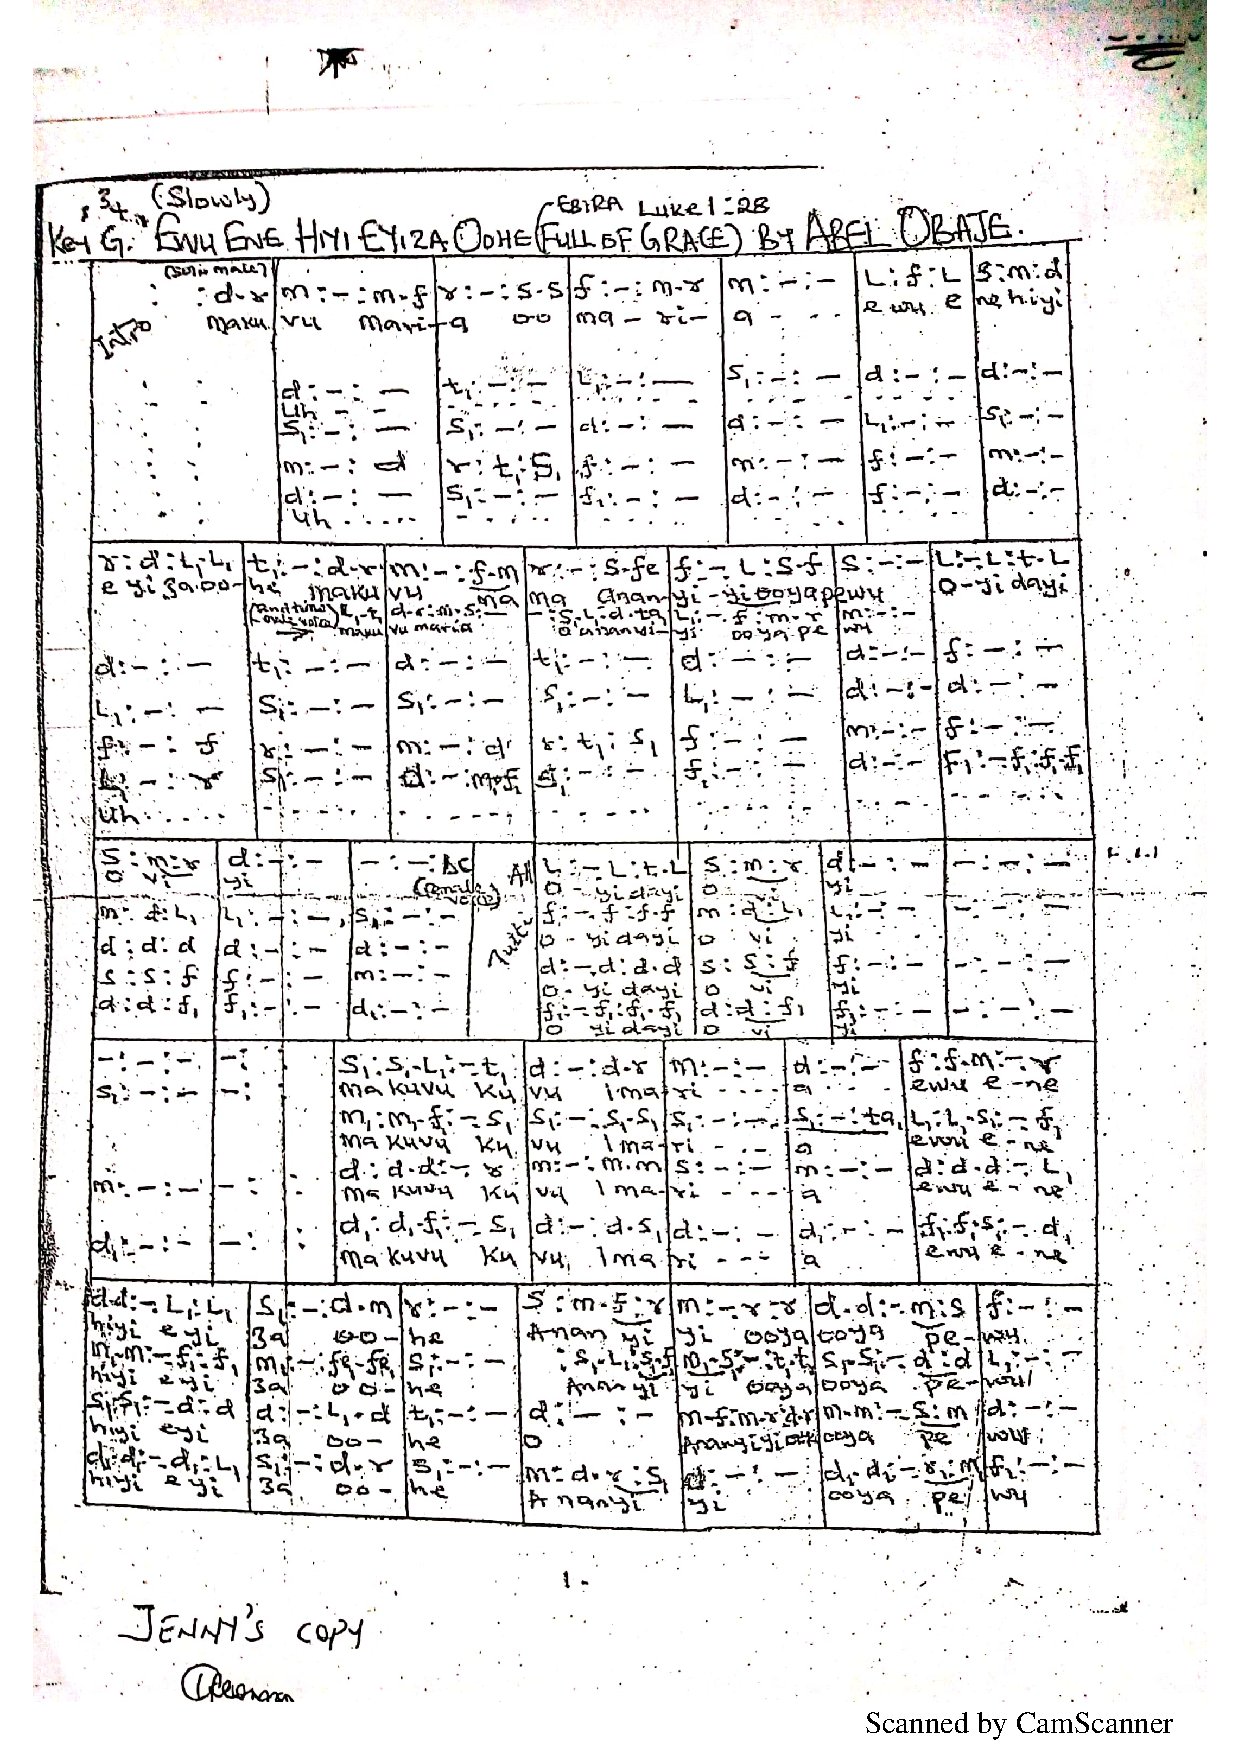 3/4 (Slowly) EBIRA Luke 1:28
Key G. EWU ENE HIYI EYIZA OOHE (FULL OF GRACE) BY ABEL OBAJE.
: : d-r m:-:m-f r:-:s-s f:-:m-r m:-:- L:f:L s:m:d
Intro maku vu mari-a oo ma-ri- a - ... e wu e ne hiyi
d:-:- t₁:-:- L₁:-:- s₁:-:- d:-:- d:-:-
uh - -
s₁:-:- s₁:-:- d:-:- d:-:- L₁:-:- s₁:-:-
m:-:d r:t₁:s₁ f:-:- m:-:- f:-:- m:-:-
d:-:- s₁:-:- f₁:-:- d:-:- f:-:- d:-:-
uh .....
r:d:L₁-L₁ t₁:-:d-r m:-:f-m r:-:s-fe f:-L:s-f s:-:- L:-L:t-L
e yi 3a.oo- he maku vu ma ma ananyi-yiooyapewu o-yidayi
maku vu maria ooyape wu
d:-:- t₁:-:- d:-:- t₁:-:- d:-:- d:-:- f:-:-
L₁:-:- s₁:-:- s₁:-:- s₁:-:- L₁:-:- d:-:- d:-:-
f:-:f r:-:- m:-:d r:t₁:s₁ f:-:- m:-:- f:-:-
s₁:-:- f₁:-:- d:-:- f₁:-f₁:f₁-f₁
uh .....
s:m:r d:-:- -:-:DC All L:-L:t-L s:m:r d:-:- -:-:-
o vi yi (female voice) o - yidayi o vi yi
m:d:L₁ L₁:-:- s₁:-:- Tutti f:-f:f-f m:d:L₁ L₁:-:- -:-:-
o - yidayi o vi yi
d:d:d d:-:- d:-:- d:-d:d-d s:s:f f:-:- -:-:-
s:s:f f:-:- m:-:- o - yidayi o vi yi
d:d:f₁ f₁:-:- d₁:-:- f₁:-f₁:f₁-f₁ d:d:f₁ f₁:-:- -:-:-
o yidayi o vi yi
-:-:- -: s₁:s₁-L₁:-t₁ d:-:d-r m:-:- d:-:- f:f-m:-r
s₁:-:- -: makuvu ku vu 1ma-ri - - - a ewu e-ne
m₁:m₁-f₁:-s₁ s₁:-:s₁-s₁ s₁:-:- s₁:-:ta₁ L₁:L₁-s₁:-f₁
makuvu ku vu 1ma-ri a ewu e-ne
m:-:- -: : d:d-d:-r m:-:m-m s:-:- m:-:- d:d-d:-L₁
makuvu ku vu 1ma-ri - - - a ewu e-ne
d₁:-:- -: : d₁:d₁-f₁:-s₁ d:-:d-s₁ d:-:- d₁:-:- f₁:f₁-s₁:-d₁
makuvu ku vu 1ma ri - - - a ewu e-ne
d-d:-L₁:L₁ s₁:-:d-m r:-:- s:m-f:r m:-r-r d-d:-m:s f:-:-
hiyi eyi 3a oo- he Anan yi yi ooya ooya pe- wu
m₁-m₁:-f₁:f₁ m₁:-:fe₁-fe₁ s₁:-:-
hiyi eyi 3a oo- he Ananyi yi ooya ooya pe- wu
s₁-s₁:-d:d d:-:L₁-d t₁:-:- d:-:- m-m:-s:m d:-:-
hiyi eyi 3a oo- he o ooya pe wu
d₁-d₁:-d₁:L₁ s₁:-:d-r s₁:-:- m:d-r:s₁ d:-:- f₁:-:-
hiyi e yi 3a oo- he Ananyi yi ooya pe wu
1 -
JENNY'S COPY
Scanned by CamScanner